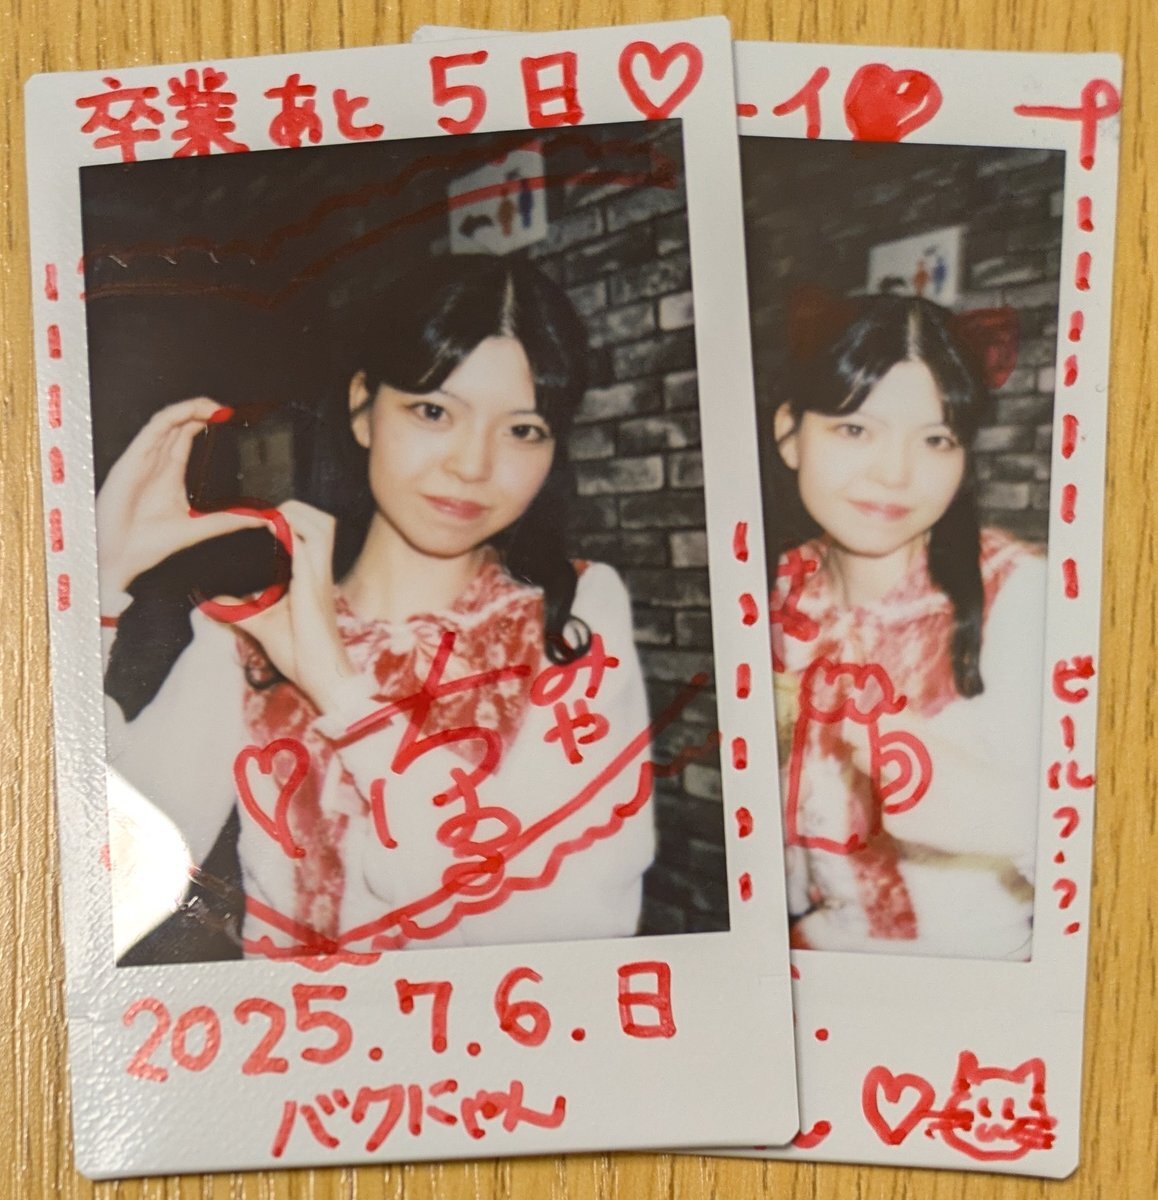 卒業あと5日♡
みや
ちほ
2025.7.6.日
バクにゃん
ーイ
ビール??